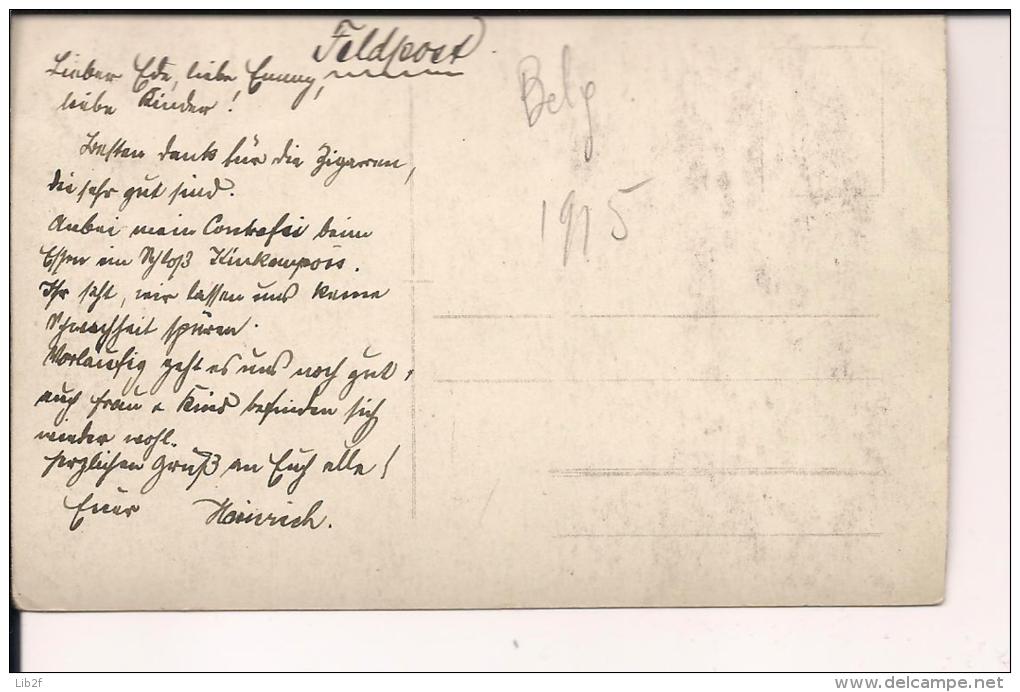 Feldpost.
Lieber Ede, liebe Emmy,
liebe Kinder!
Besten Dank für die Zigarren,
die sehr gut sind.
Anbei mein Contrafei beim
Essen im Schloß Kinkempois.
Ihr seht, wir lassen uns keine
Schwachheit spüren.
Vorläufig geht es uns noch gut,
auch Frau & Kind befinden sich
wieder wohl.
Herzlichen Gruß an Euch alle!
Euer Heinrich.
Belg
1915
Lib2f
delcampe.net